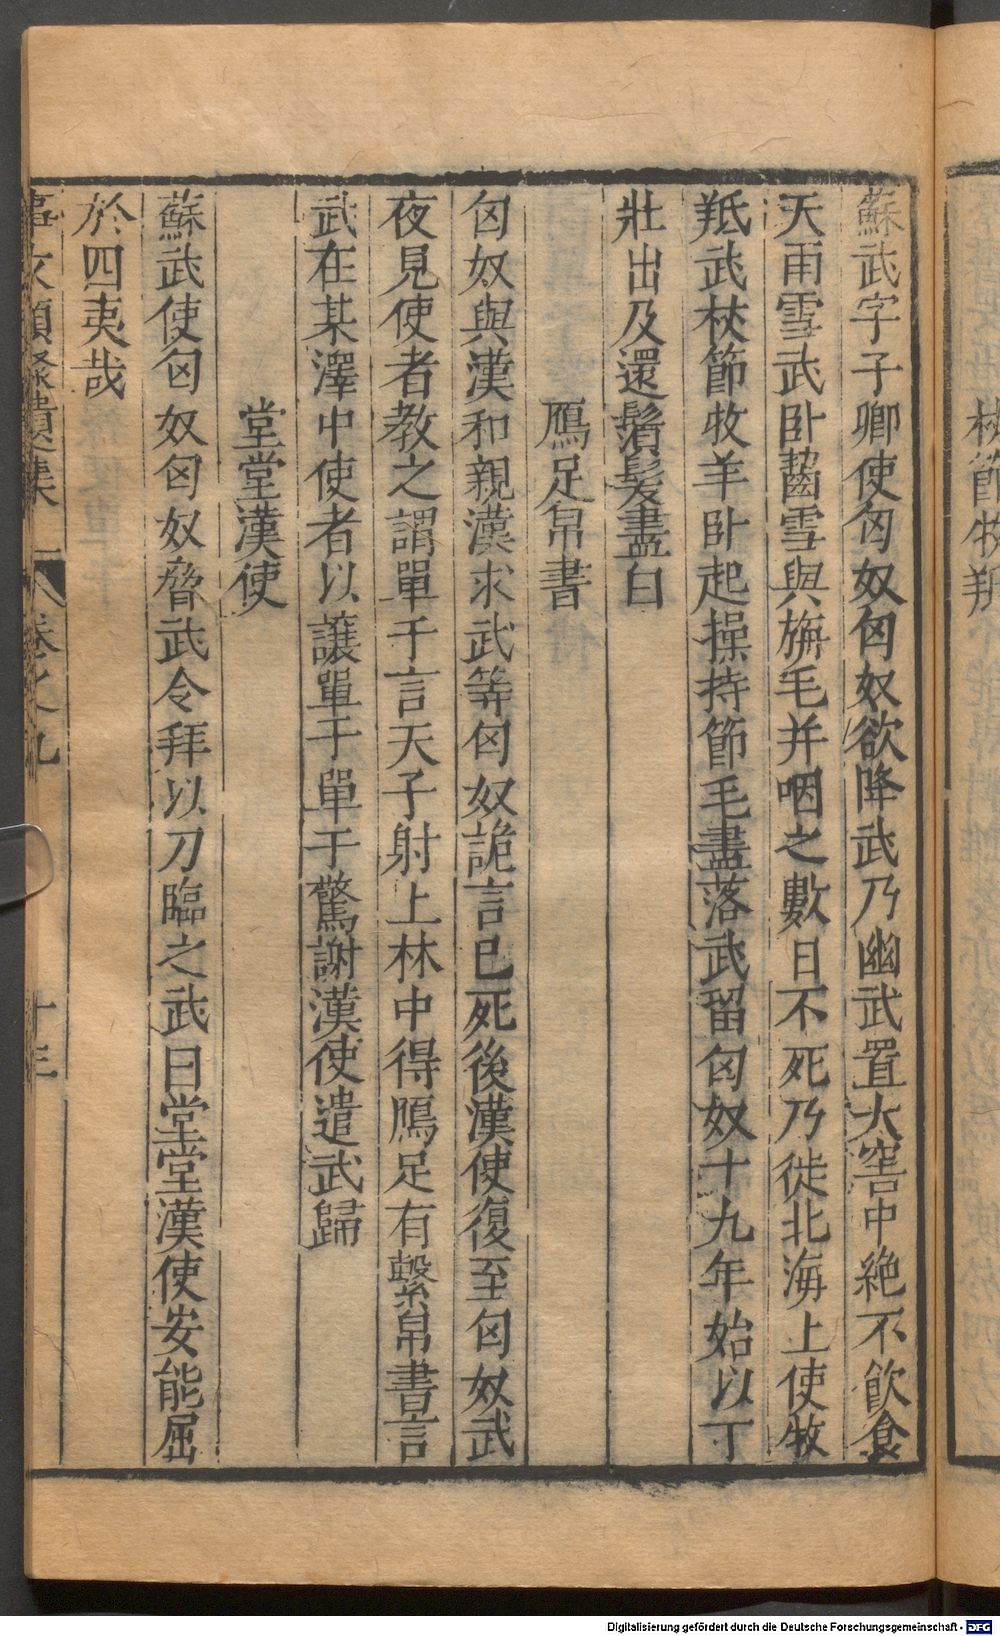 杖節牧羝
蘇武字子卿使匈奴匈奴欲降武乃幽武置大窖中絶不飲食
天雨雪武卧齧雪與旃毛并咽之數日不死乃徙北海上使牧
羝武杖節牧羊卧起操持節毛盡落武留匈奴十九年始以丁
壯出及還鬚髮盡白
鴈足帛書
匈奴與漢和親漢求武等匈奴詭言已死後漢使復至匈奴武
夜見使者教之謂單于言天子射上林中得鴈足有繫帛書言
武在某澤中使者以讓單于單于驚謝漢使遣武歸
堂堂漢使
蘇武使匈奴匈奴脅武令拜以刀臨之武曰堂堂漢使安能屈
於四夷哉
卷之九
十三
Digitalisierung gefördert durch die Deutsche Forschungsgemeinschaft - DFG